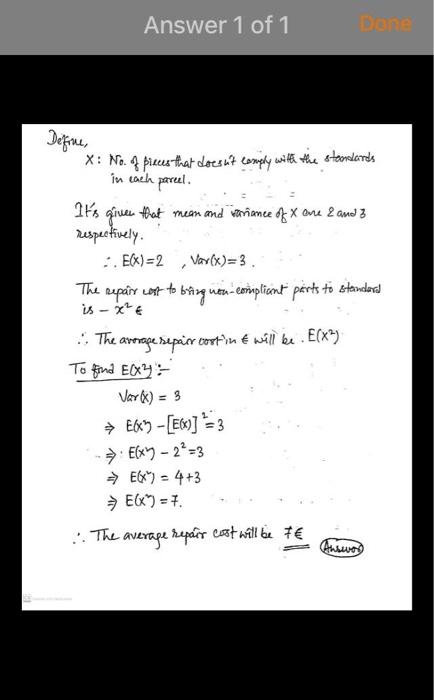 Answer 1 of 1
Done
Define,
X: No. of pieces that doesn't comply with the standards
in each parcel.
It's given that mean and variance of X are 2 and 3
respectively.
∴ E(X)=2 , Var(X)=3.
The repair cost to bring non-compliant parts to standard
is – x² €
∴ The average repair cost in € will be . E(X²)
To find E(X²) :–
Var(X) = 3
⇒ E(X²) – [E(X)]² = 3
⇒ E(X²) – 2² = 3
⇒ E(X²) = 4+3
⇒ E(X²) = 7.
∴ The average repair cost will be 7€
Answer